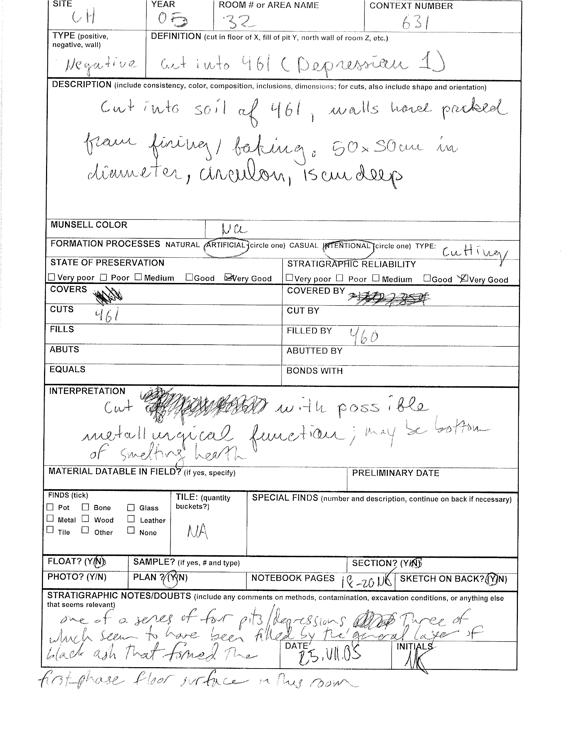 SITE YEAR ROOM # or AREA NAME CONTEXT NUMBER
CH 05 32 631
TYPE (positive, negative, wall) DEFINITION (cut in floor of X, fill of pit Y, north wall of room Z, etc.)
Negative Cut into 461 (Depression 1)
DESCRIPTION (include consistency, color, composition, inclusions, dimensions; for cuts, also include shape and orientation)
Cut into soil of 461, walls have packed
from firing/baking. 50x50cm in
diameter, circular, 15cm deep
MUNSELL COLOR Na
FORMATION PROCESSES NATURAL ARTIFICIAL (circle one) CASUAL INTENTIONAL (circle one) TYPE: Cutting
STATE OF PRESERVATION STRATIGRAPHIC RELIABILITY
Very poor Poor Medium Good Very Good Very poor Poor Medium Good Very Good
COVERS COVERED BY
CUTS 461 CUT BY
FILLS FILLED BY 460
ABUTS ABUTTED BY
EQUALS BONDS WITH
INTERPRETATION
Cut with possible
metallurgical function; may be bottom
of smelting hearth
MATERIAL DATABLE IN FIELD? (if yes, specify) PRELIMINARY DATE
FINDS (tick) TILE: (quantity buckets?) SPECIAL FINDS (number and description, continue on back if necessary)
Pot Bone Glass
Metal Wood Leather
Tile Other None NA
FLOAT? (Y/N) SAMPLE? (if yes, # and type) SECTION? (Y/N)
PHOTO? (Y/N) PLAN ? (Y/N) NOTEBOOK PAGES 18-20 NK SKETCH ON BACK? (Y/N)
STRATIGRAPHIC NOTES/DOUBTS (include any comments on methods, contamination, excavation conditions, or anything else
that seems relevant)
one of a series of four pits/depressions Three of
which seem to have been filled by the general layer of
black ash that formed the DATE 25.VII.05 INITIALS NK
first phase floor surface in this room